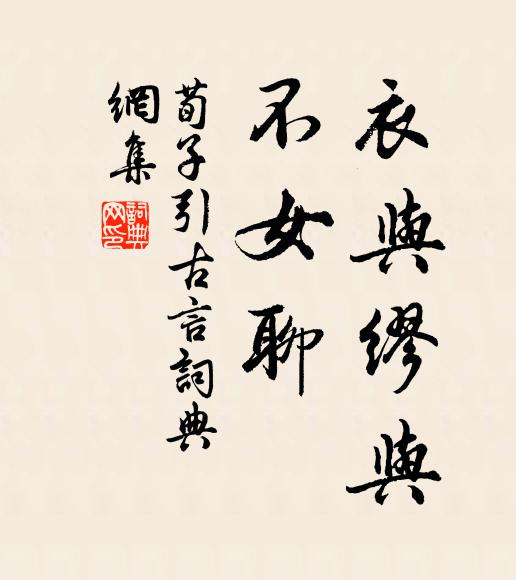 衣與繆與
不女聊
荀子引古言詞典
網集
詞典
网印